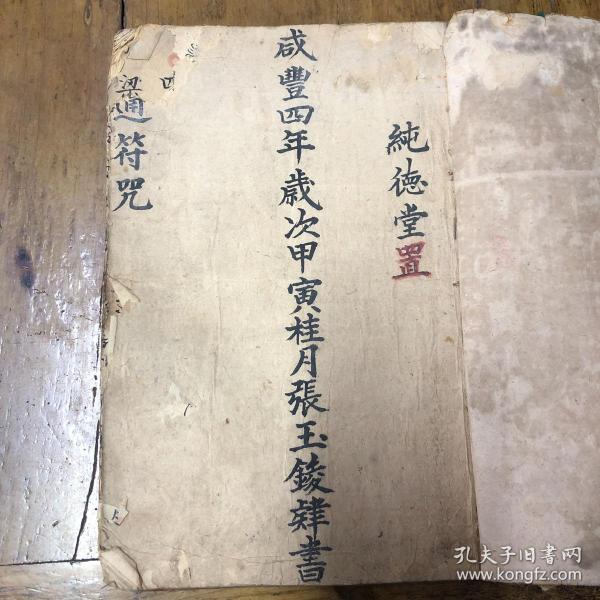 純徳堂置
咸豐四年歲次甲寅桂月張玉錂肄書
通符咒
孔夫子旧书网
www.kongfz.com